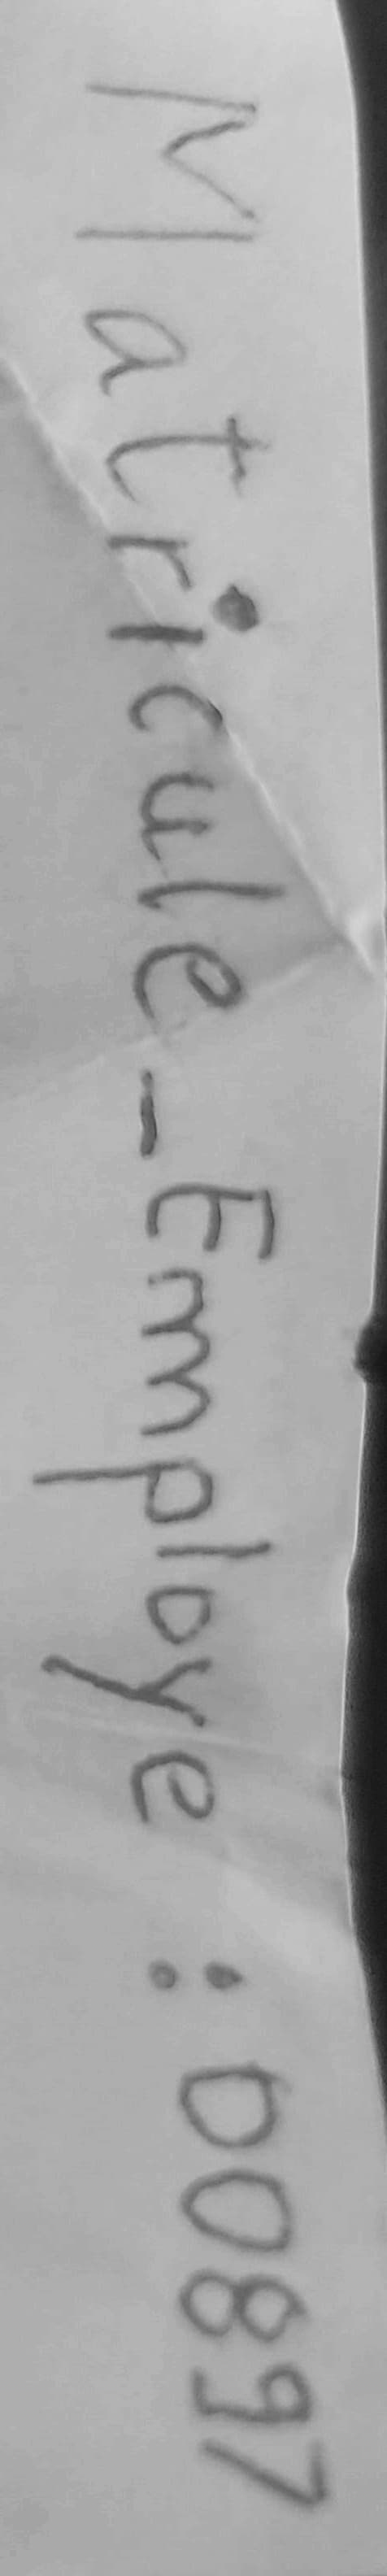 Matricule_Employe : 00897